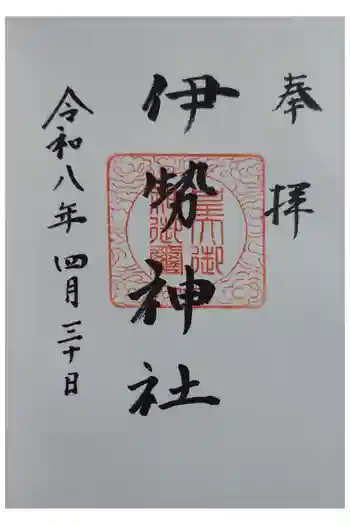 奉拝
伊勢神社
令和八年四月三十日